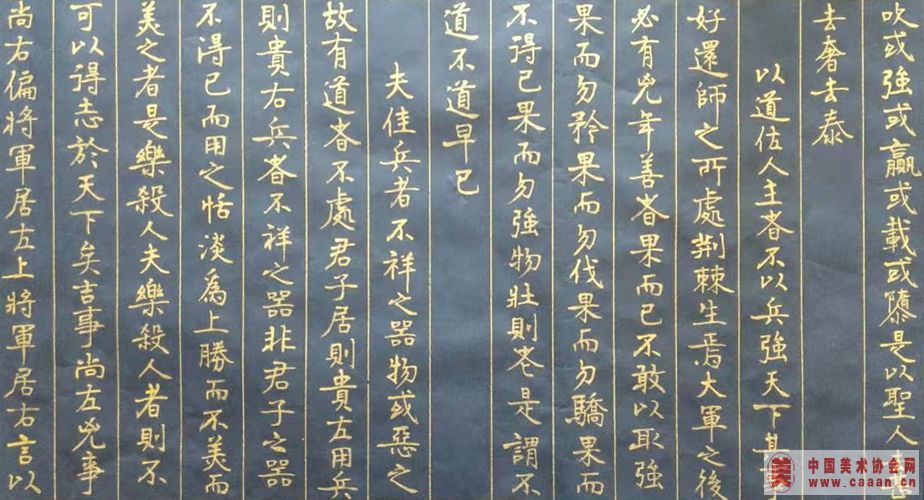 吹或強或羸或載或隳是以聖人去
去奢去泰
以道佐人主者不以兵強天下其
好還師之所處荆棘生焉大軍之後
必有凶年善者果而已不敢以取強
果而勿矜果而勿伐果而勿驕果而
不得已果而勿強物壯則老是謂不
道不道早已
夫佳兵者不祥之器物或惡之
故有道者不處君子居則貴左用兵
則貴右兵者不祥之器非君子之器
不得已而用之恬淡爲上勝而不美而
美之者是樂殺人夫樂殺人者則不
可以得志於天下矣吉事尚左凶事
尚右偏將軍居左上將軍居右言以
美
中国美术协会网
www.caaan.cn